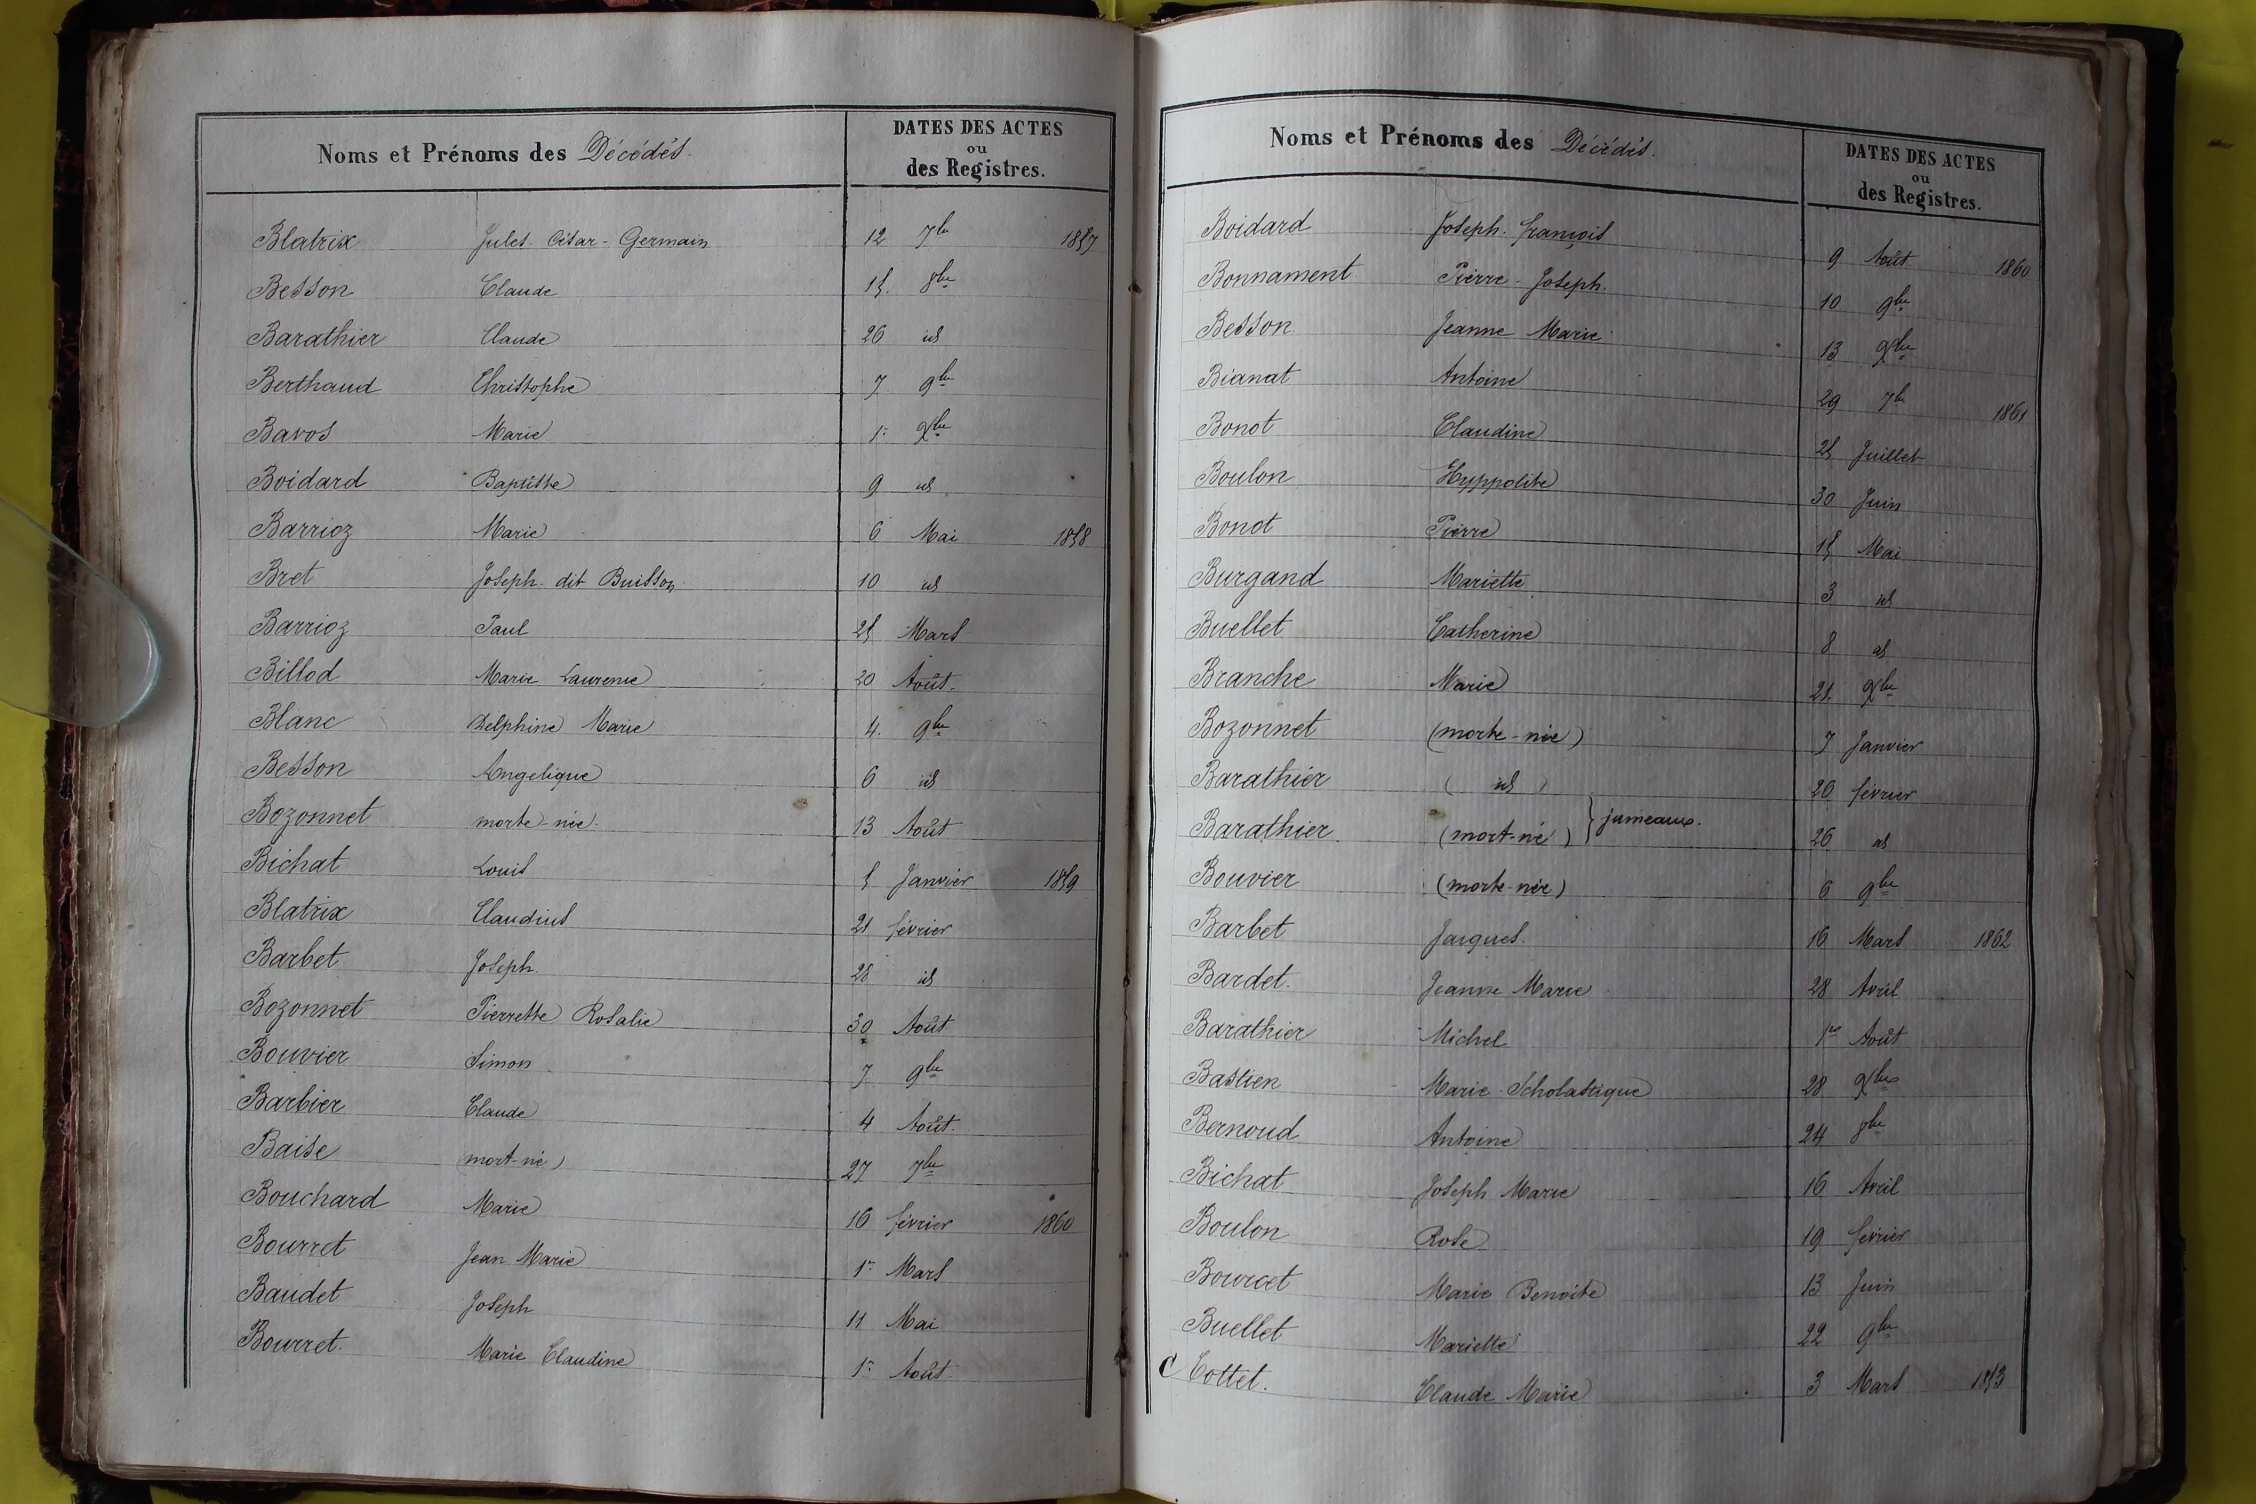 Noms et Prénoms des Décédés.
DATES DES ACTES
ou
des Registres.
Blatrix Jules-César-Germain 12 7bre 1857
Besson Claude 15. 8bre
Barathier Claude 26 id
Berthaud Christophe 7 9bre
Bavos Marie 1er Xbre
Boidard Baptiste 9 id
Barrioz Marie 6 Mai 1858
Bret Joseph dit Buisson 10 id
Barrioz Paul 25 Mars
Billod Marie Laurence 20 Août.
Blanc Delphine Marie 4. 9bre
Besson Angelique 6 id
Bozonnet morte-née. 13 Août
Bichat Louis 5 Janvier 1859
Blatrix Claudius 25 février
Barbet Joseph 28 id
Bozonnet Pierrette Rosalie 30 Août
Bouvier Simon 7 9bre
Barbier Claude 4 Août.
Baise mort-né 27 7bre
Bouchard Marie 16 février 1860
Bourret Jean Marie 1er Mars
Baudet Joseph 11 Mai
Bourret. Marie Claudine 1er Août
Noms et Prénoms des Décédés.
DATES DES ACTES
ou
des Registres.
Boidard Joseph-françois 9 Août 1860
Bonnament Pierre-Joseph. 10 9bre
Besson Jeanne Marie 13 Xbre
Bianat Antoine 29 7bre 1861
Bonot Claudine 25 Juillet
Boulon Hyppolite 30 Juin
Bonot Pierre 15 Mai
Burgand Mariette 3 id
Buellet Catherine 8 id
Branche Marie 25. Xbre
Bozonnet (morte-née) 7 Janvier
Barathier ( id ) 26 février
Barathier (mort-né) } jumeaux. 26 id
Bouvier (morte-née) 6 9bre
Barbet Jacques. 16 Mars 1862
Bardet. Jeanne Marie 28 Avril
Barathier Michel 1er Août
Bastien Marie-Scholastique 28 Xbre
Bernoud Antoine 24 8bre
Bichat Joseph Marie 16 Avril
Boulon Rose 19 février
Bourcet Marie Benoite 13 Juin
Buellet Mariette 22 9bre
C Cottet. Claude Marie 3 Mars 1853